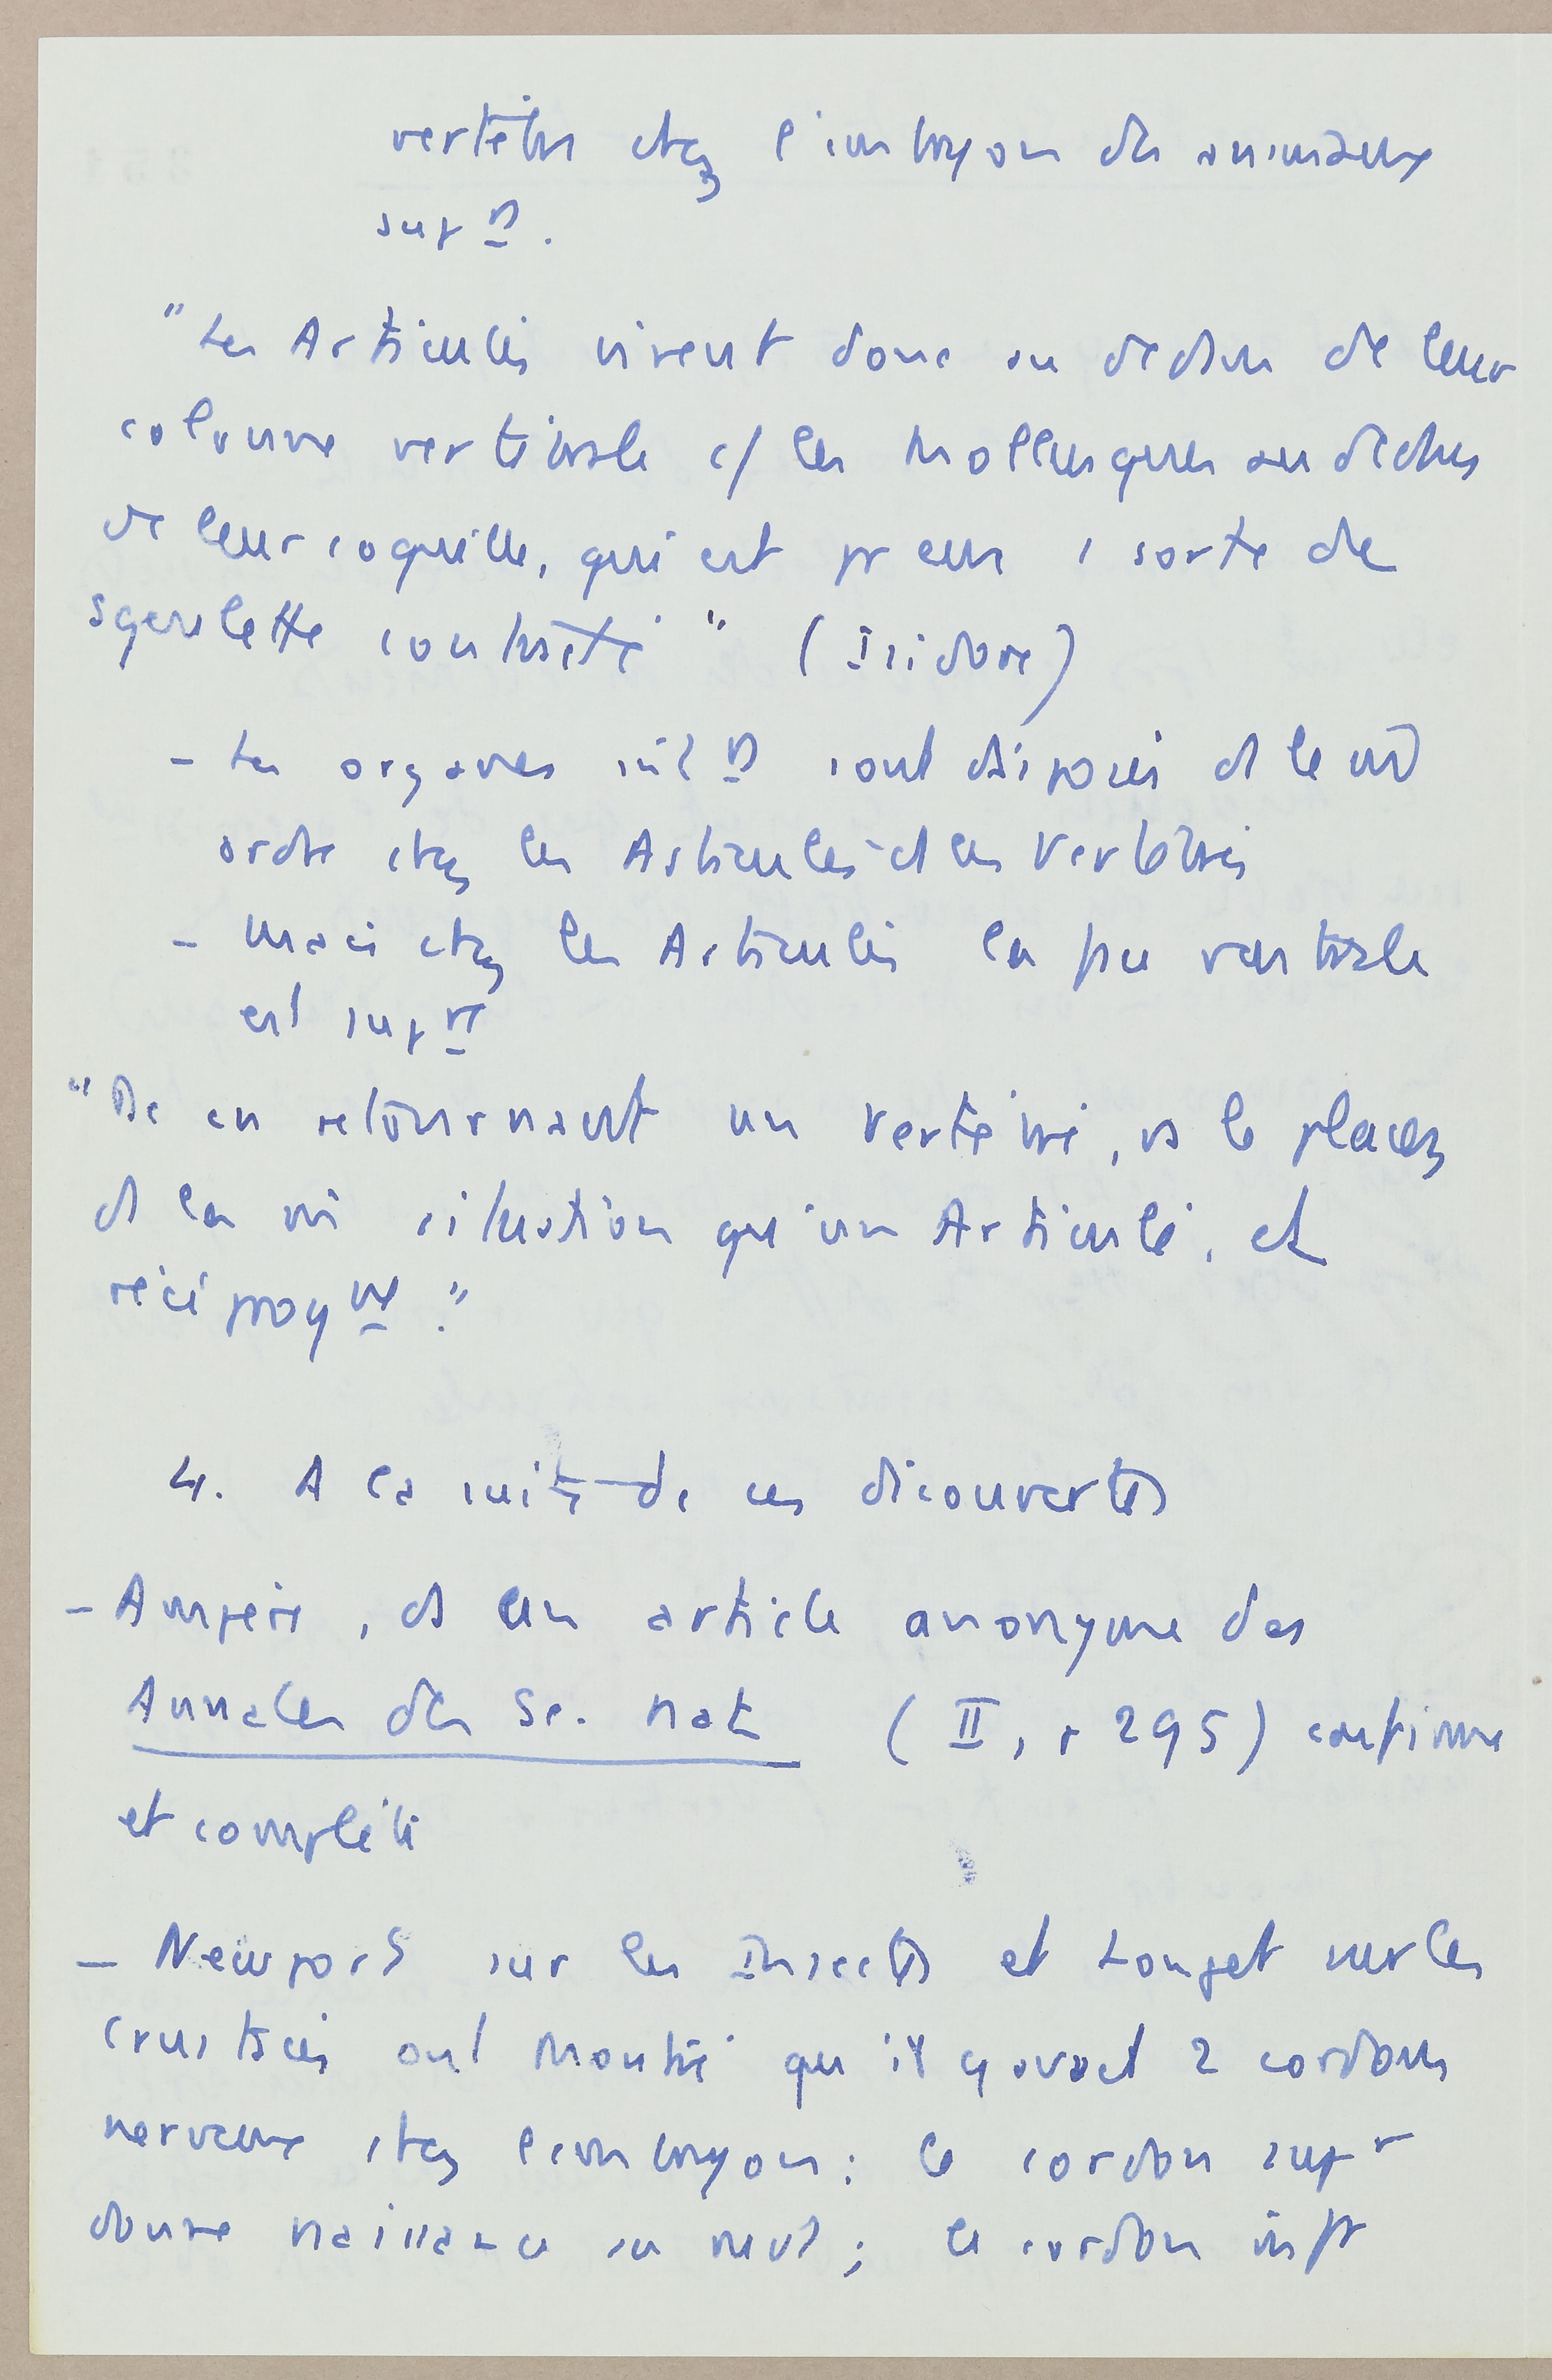 vertèbres chez l'embryon des animaux
sup rs.
"Les Articulés vivent donc au dedans de leur
colonne vertébrale c/ les Mollusques au dedans
de leur coquille, qui est pr eux 1 sorte de
squelette contracté" (Isidore)
- Les organes int rs sont disposés ds le m
ordre chez les Articulés et les Vertébrés
- Mais chez les Articulés la face ventrale
est sup re
"De en retournant un vertébré, vs le placez
ds la m situation qu'un Articulé, et
réciproq nt."
4. A la suite de ces découvertes
- Ampère, ds un article anonyme des
Annales des Sc. Nat (II, p 295) confirme
et complète
- Newport sur les Insectes et Longet sur les
crustacés ont montré qu'il y avait 2 cordons
nerveux chez l'embryon : le cordon sup r
donne naissance au ; le cordon inf r